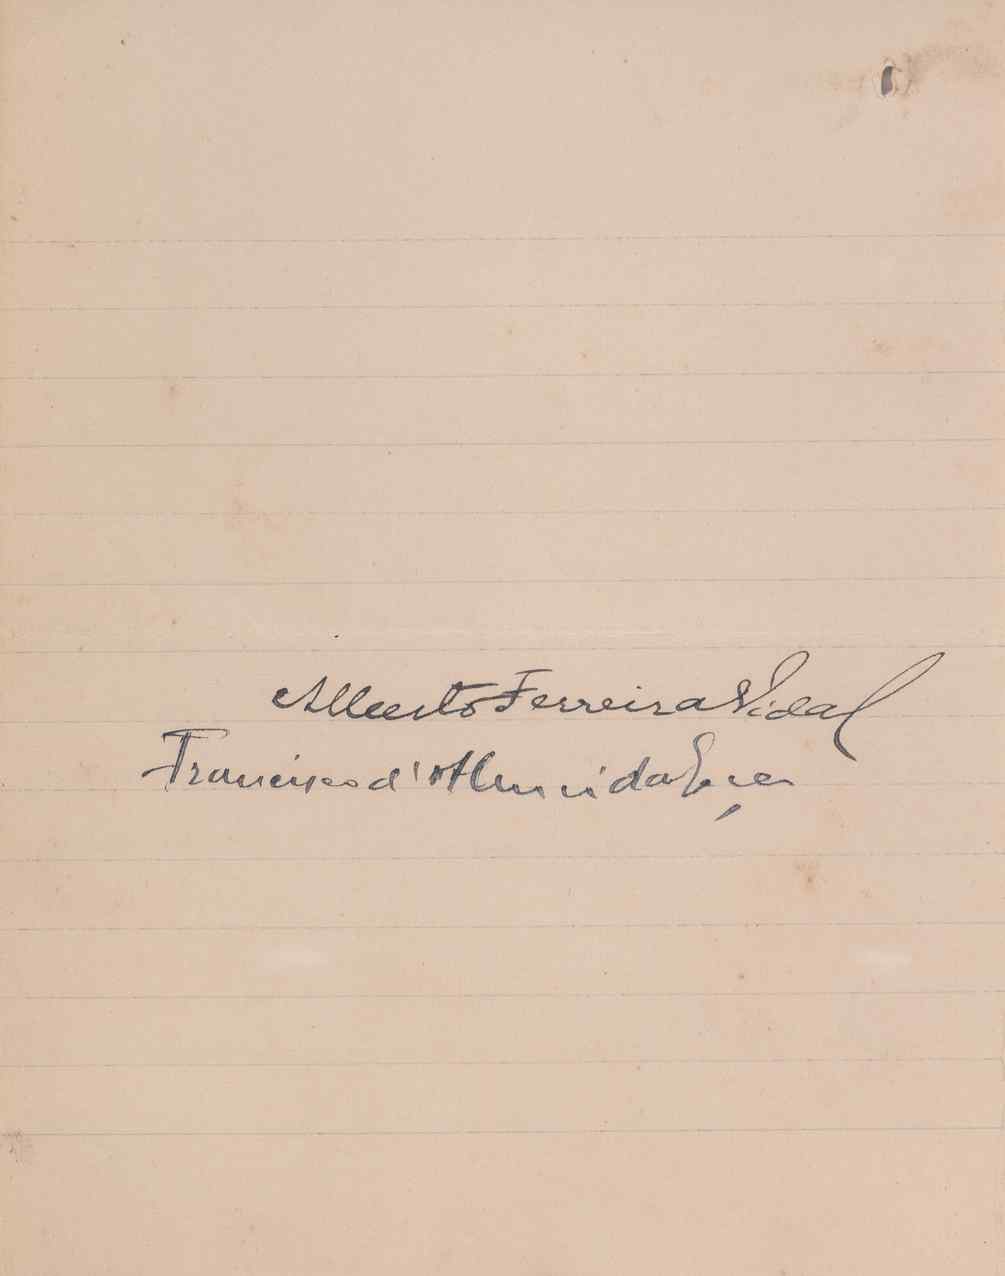 Alberto Ferreira Vidal
Francisco d'Almeida Eça